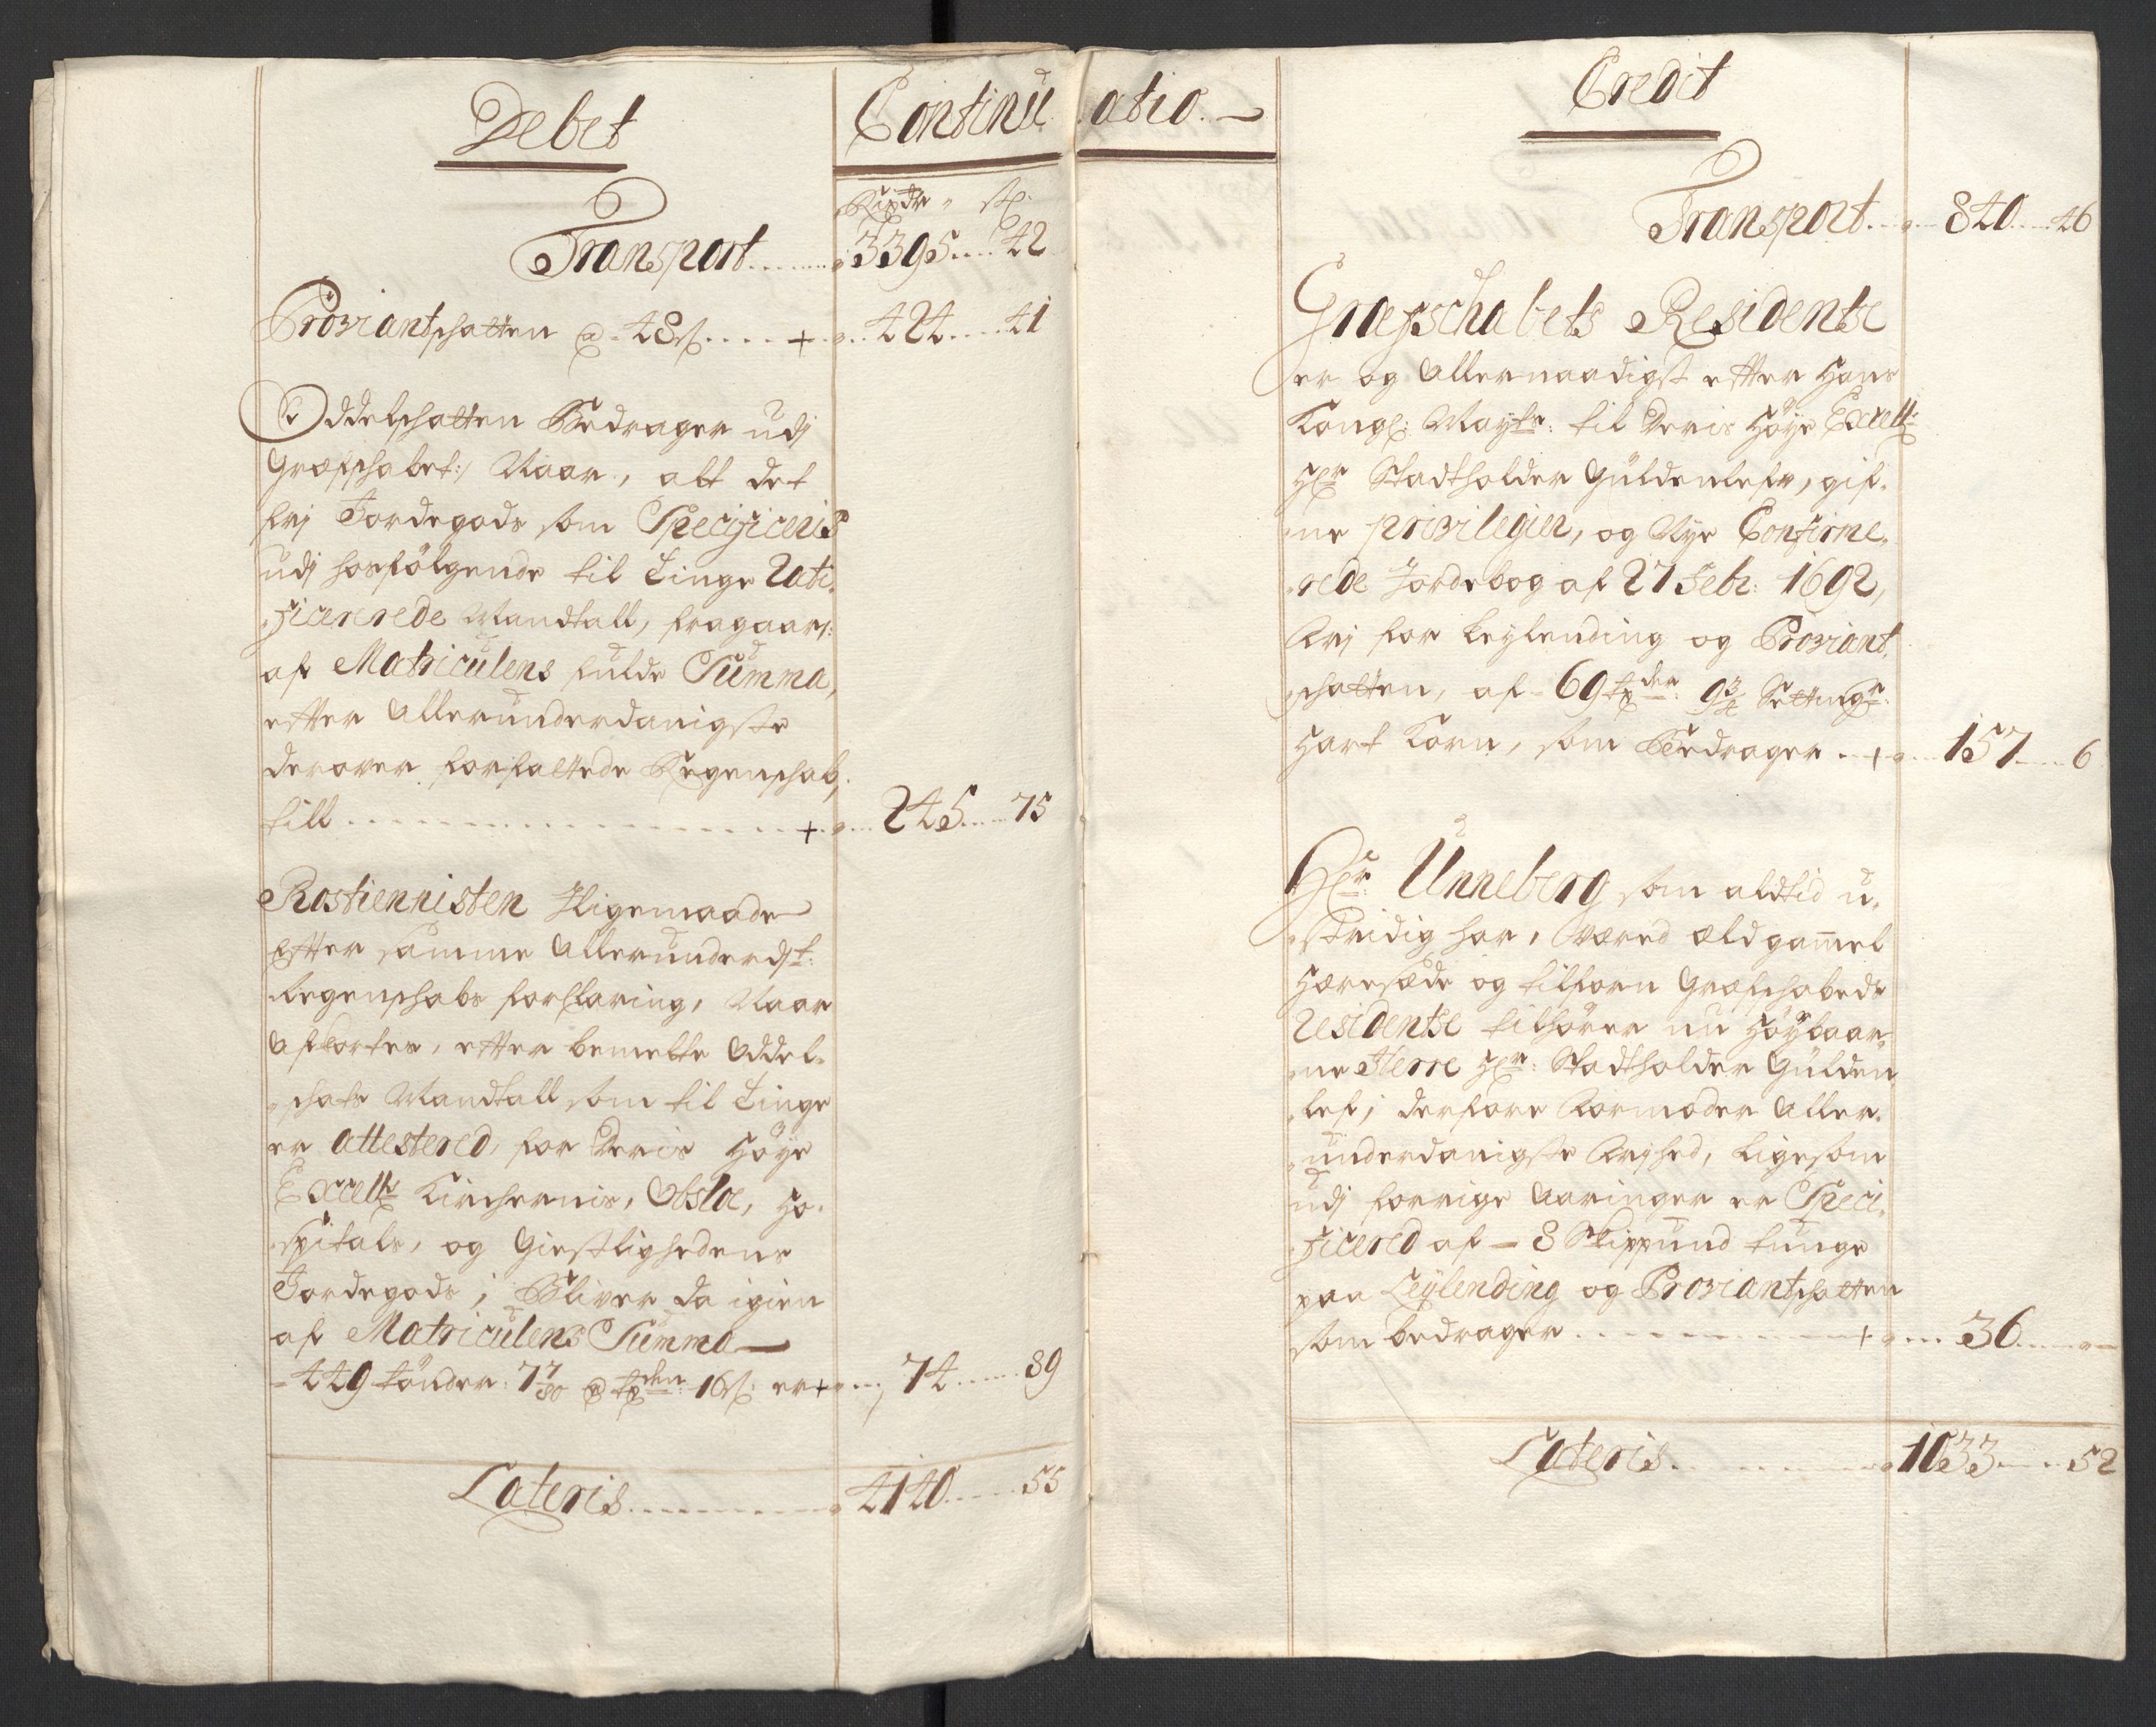 Debet
Continu atio
Rixdr sk
Transport 3395 42
Proviantschatten @ 48 sk + 424 41
Oddelschatten Bedrager udj
Græfschabet :/ Naar, alt det
frj Jordegods som Specificeris
udj hosfölgende til Tinge Rati-
ficererede Mandtall, fragaar :/
af Matriculens fulde Summa,
efter Allerunderdanigste
derover forfattede Regenschab,
till + 245 75
Rostiennisten Iligemaade
efter samme Allerunderdst:
Regenschabs forklaring, Naar
Afkortes, efter bemelte Oddel-
schats Mandtall som til Tinge
er attestered, for deris Höye
Excells Kirchernis, Obsloe, Ho-
spitals, og Giestlighedens
Jordegods, Bliver da igien
af Matriculens Summa
449 tönder 7 7/80 @ tden 16 sk: er + 74 89
Lateris 4140 55
Credit
Transport 840 46
Græfschabets Residentse
er og Allernaadigst efter Hans
Kongl: Mayts: til deris Höye Excells
Hr Stadtholder Güldenlefv, gif-
ne privilegier, og Nye Confirme-
rede Jordebog af 27 Febr: 1692,
frj for Leylending og Proviant
schatten, af 69 tder: 9 3/4 Settingr
Hart Korn, som Bedrager + 157 6
Hr: Unneberg som aldtid u-
stridig har, været ældgamel
Hæresæde og tilforn Græfschabeds
residentse tilhörer nu Höybaar-
ne Herre Hr: Stadtholder Gülden
lef, derfore formoder Aller-
underdanigste frjhed, ligesom
udj forrige Aaringer er Speci-
ficered af 8 Skippund tunge
paa Leylending og Proviantschatten
som bedrager + 36
Lateris 1033 52